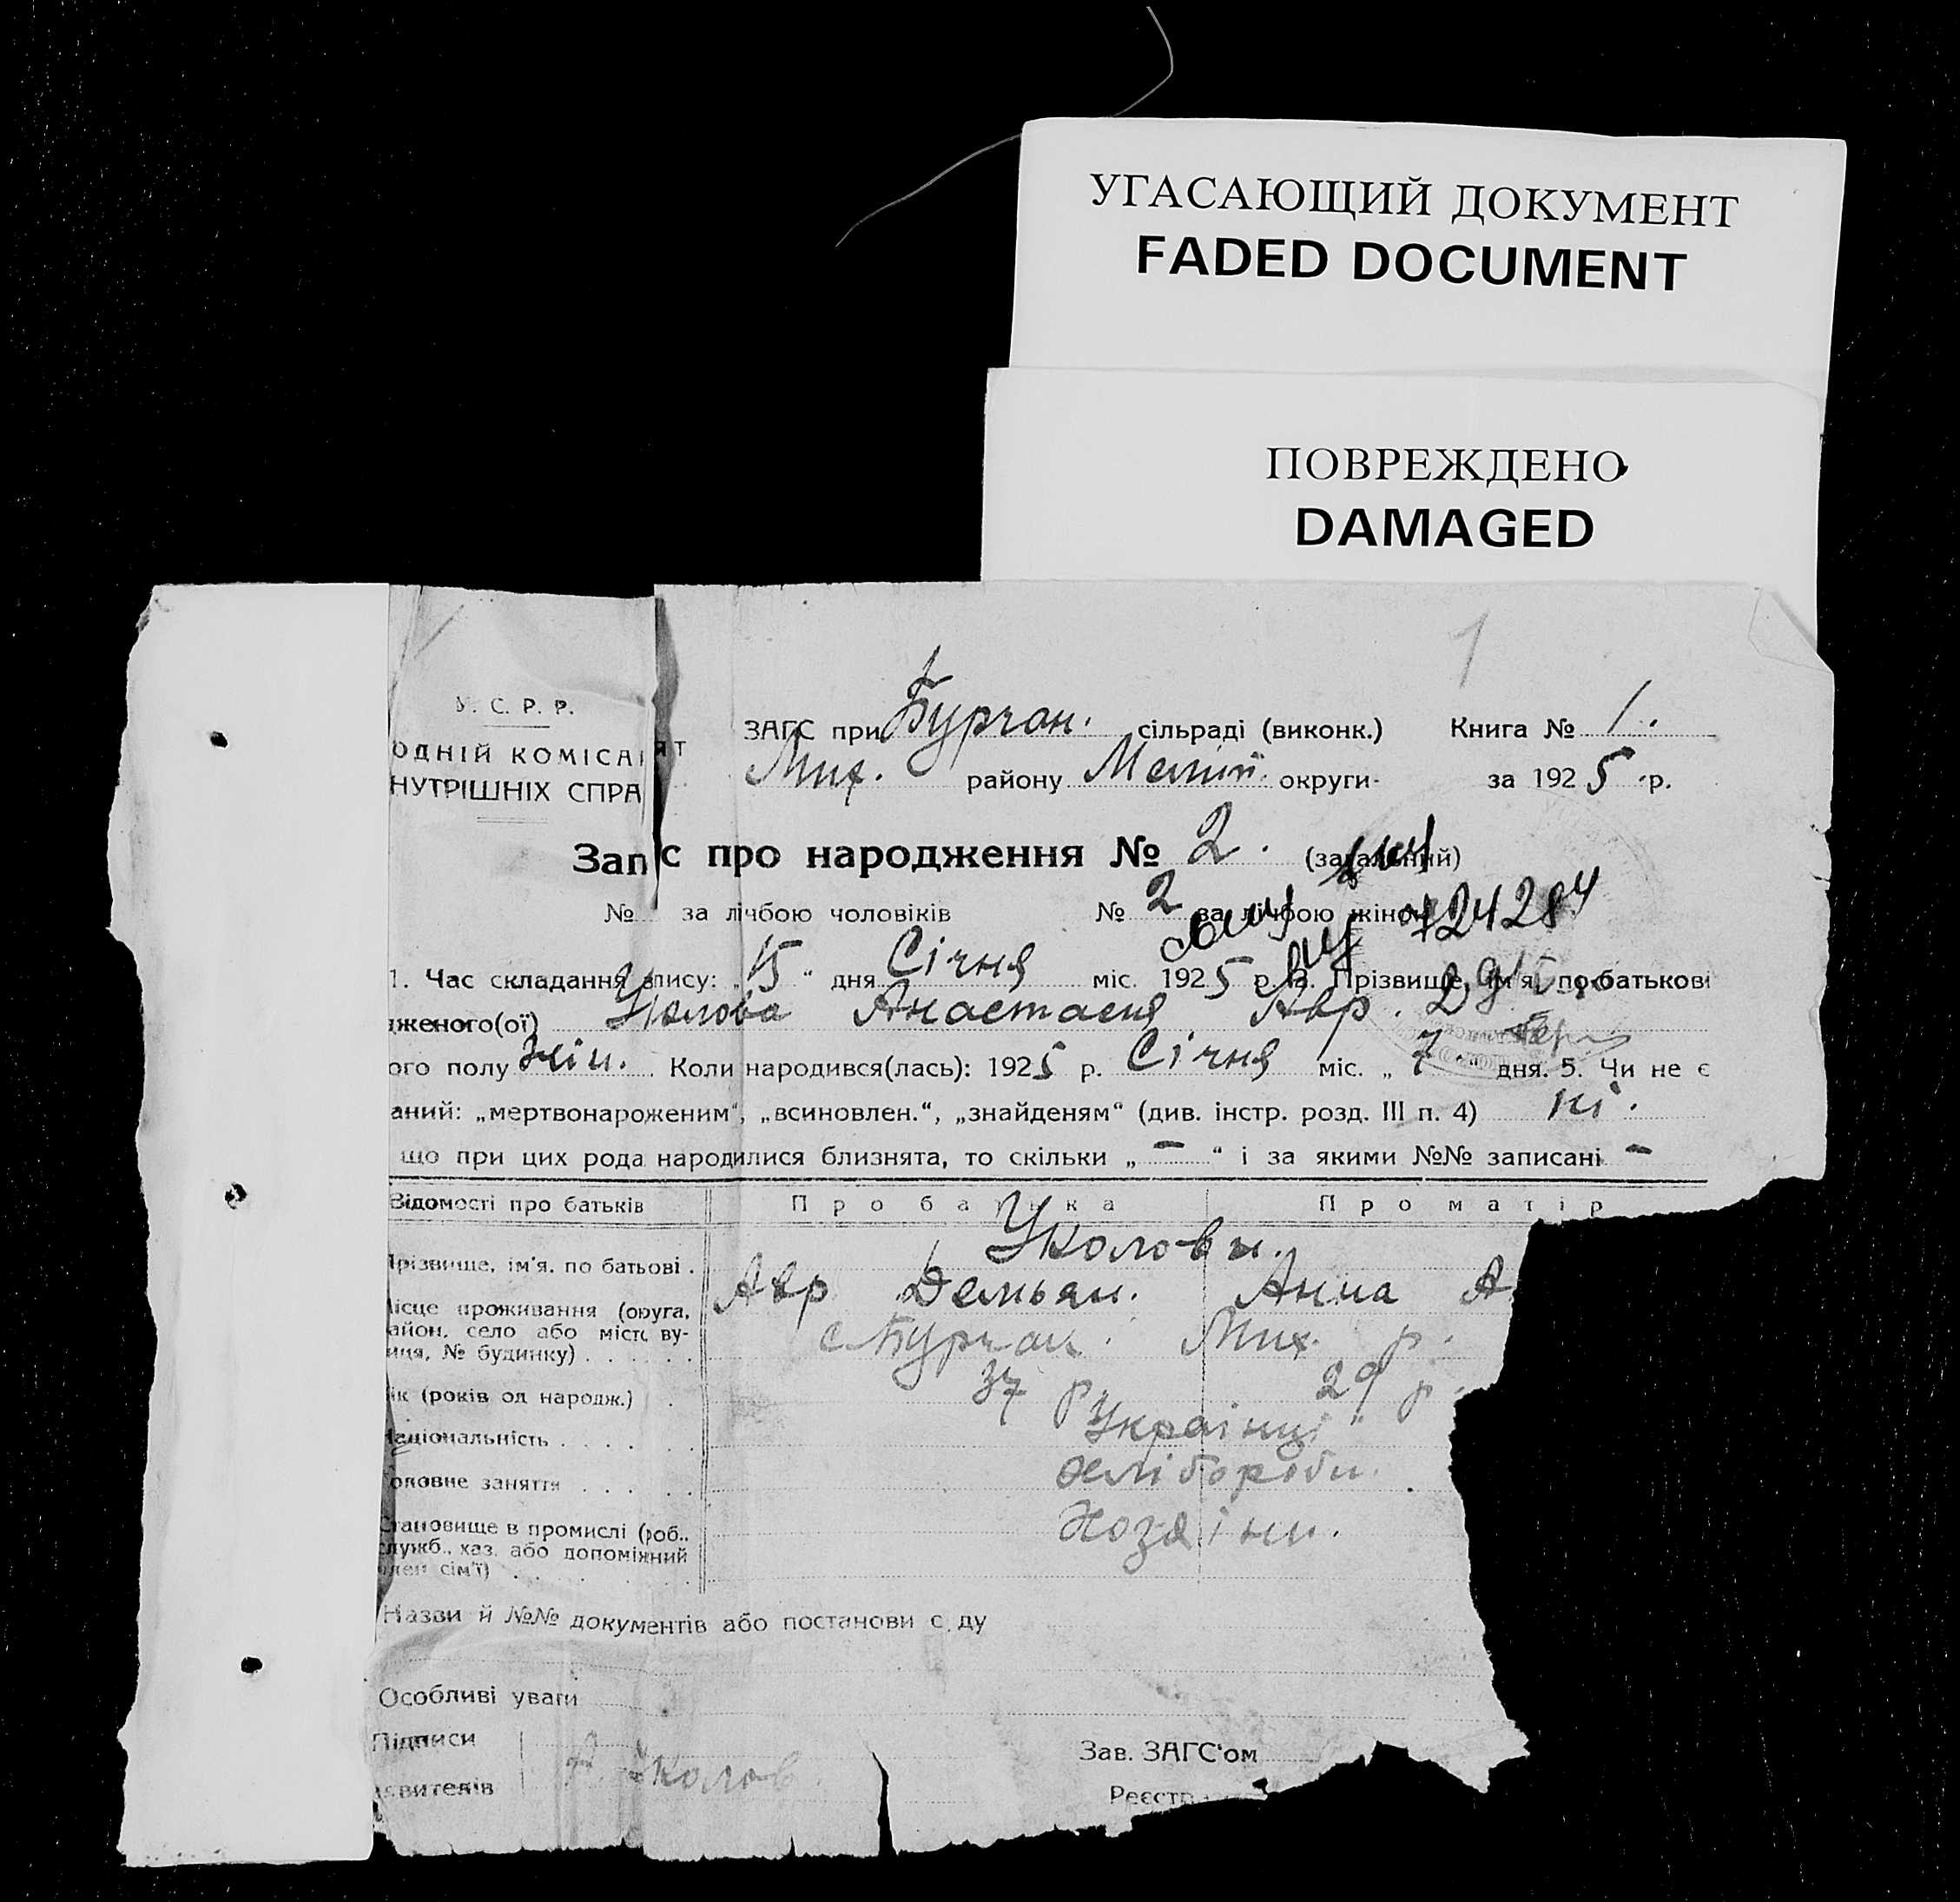 УГАСАЮЩИЙ ДОКУМЕНТ
FADED DOCUMENT
ПОВРЕЖДЕНО
DAMAGED
1
У. С. Р. Р.
ОДНІЙ КОМІСАРІЯТ
НУТРІШНІХ СПРА
ЗАГС при Бурчан. сільраді (виконк.) Книга № 1.
Мих. району Меліт. округи за 1925 р.
Запис про народження № 2. (загальний)
№ за лічбою чоловіків № 2 за лічбою жінок
1. Час складання запису: „15“ дня Січня міс. 1925 р. 2. Прізвище, ім'я, по-батькові
дженого(ої) Уколова Анастасия Авр.
ого полу жін. Коли народився(лась): 1925 р. Січня міс. „7“ дня. 5. Чи не є
аний: „мертвонароженим“, „всиновлен.“, „знайденям“ (див. інстр. розд. III п. 4) ні.
що при цих родах народилися близнята, то скільки „–“ і за якими №№ записані –
Відомості про батьків Про батька Про матір
Прізвище, ім'я, по батьові . Уколовы.
Авр Демьян. Анна А
Місце проживання (округа,
айон, село або місто, ву-
иця, № будинку) . . . . . с Бурчан. Мих. р.
ік (років од народж.) . 37 р. 29 р.
Національність . . . . . . Українці
Головне заняття . . . . . хлібороби.
Становище в промислі (роб.,
служб., хаз. або допоміжний
член сім'ї) . . . Хозяіни.
Назви й №№ документів або постанови суду
Особливі уваги
Підписи
явителів Уколов
Зав. ЗАГС'ом
Реєстр